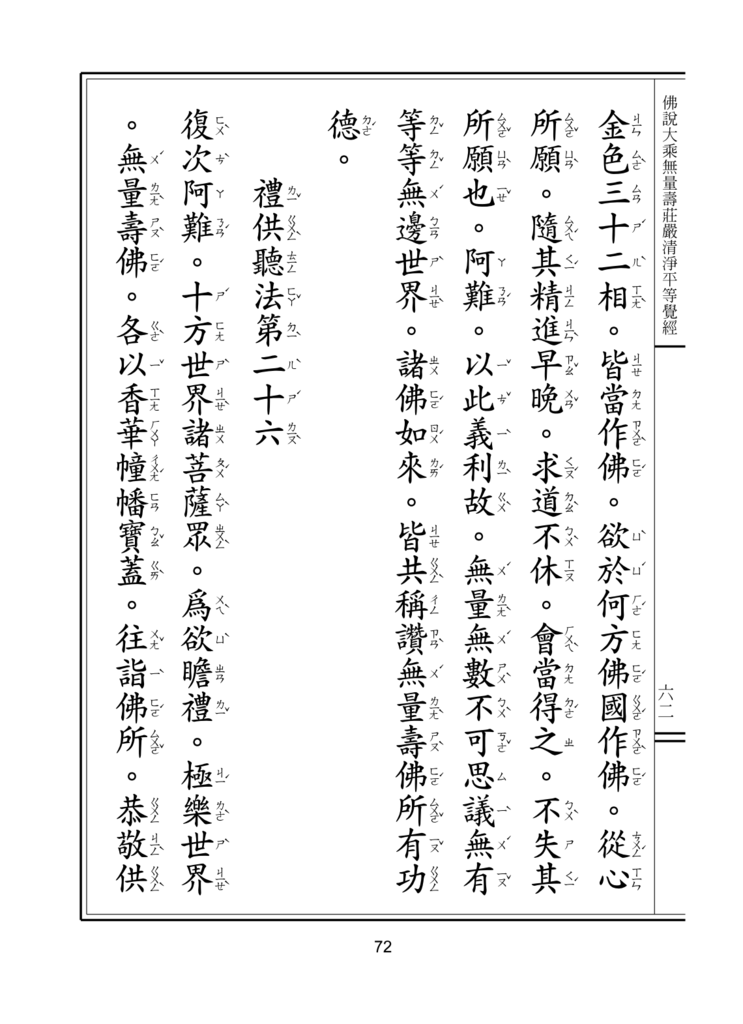 佛說大乘無量壽莊嚴清淨平等覺經
六二
金色三十二相。皆當作佛。欲於何方佛國作佛。從心
所願。隨其精進早晚。求道不休。會當得之。不失其
所願也。阿難。以此義利故。無量無數不可思議無有
等等無邊世界。諸佛如來。皆共稱讚無量壽佛所有功
德。
禮供聽法第二十六
復次阿難。十方世界諸菩薩眾。為欲瞻禮。極樂世界
。無量壽佛。各以香華幢幡寶蓋。往詣佛所。恭敬供
72